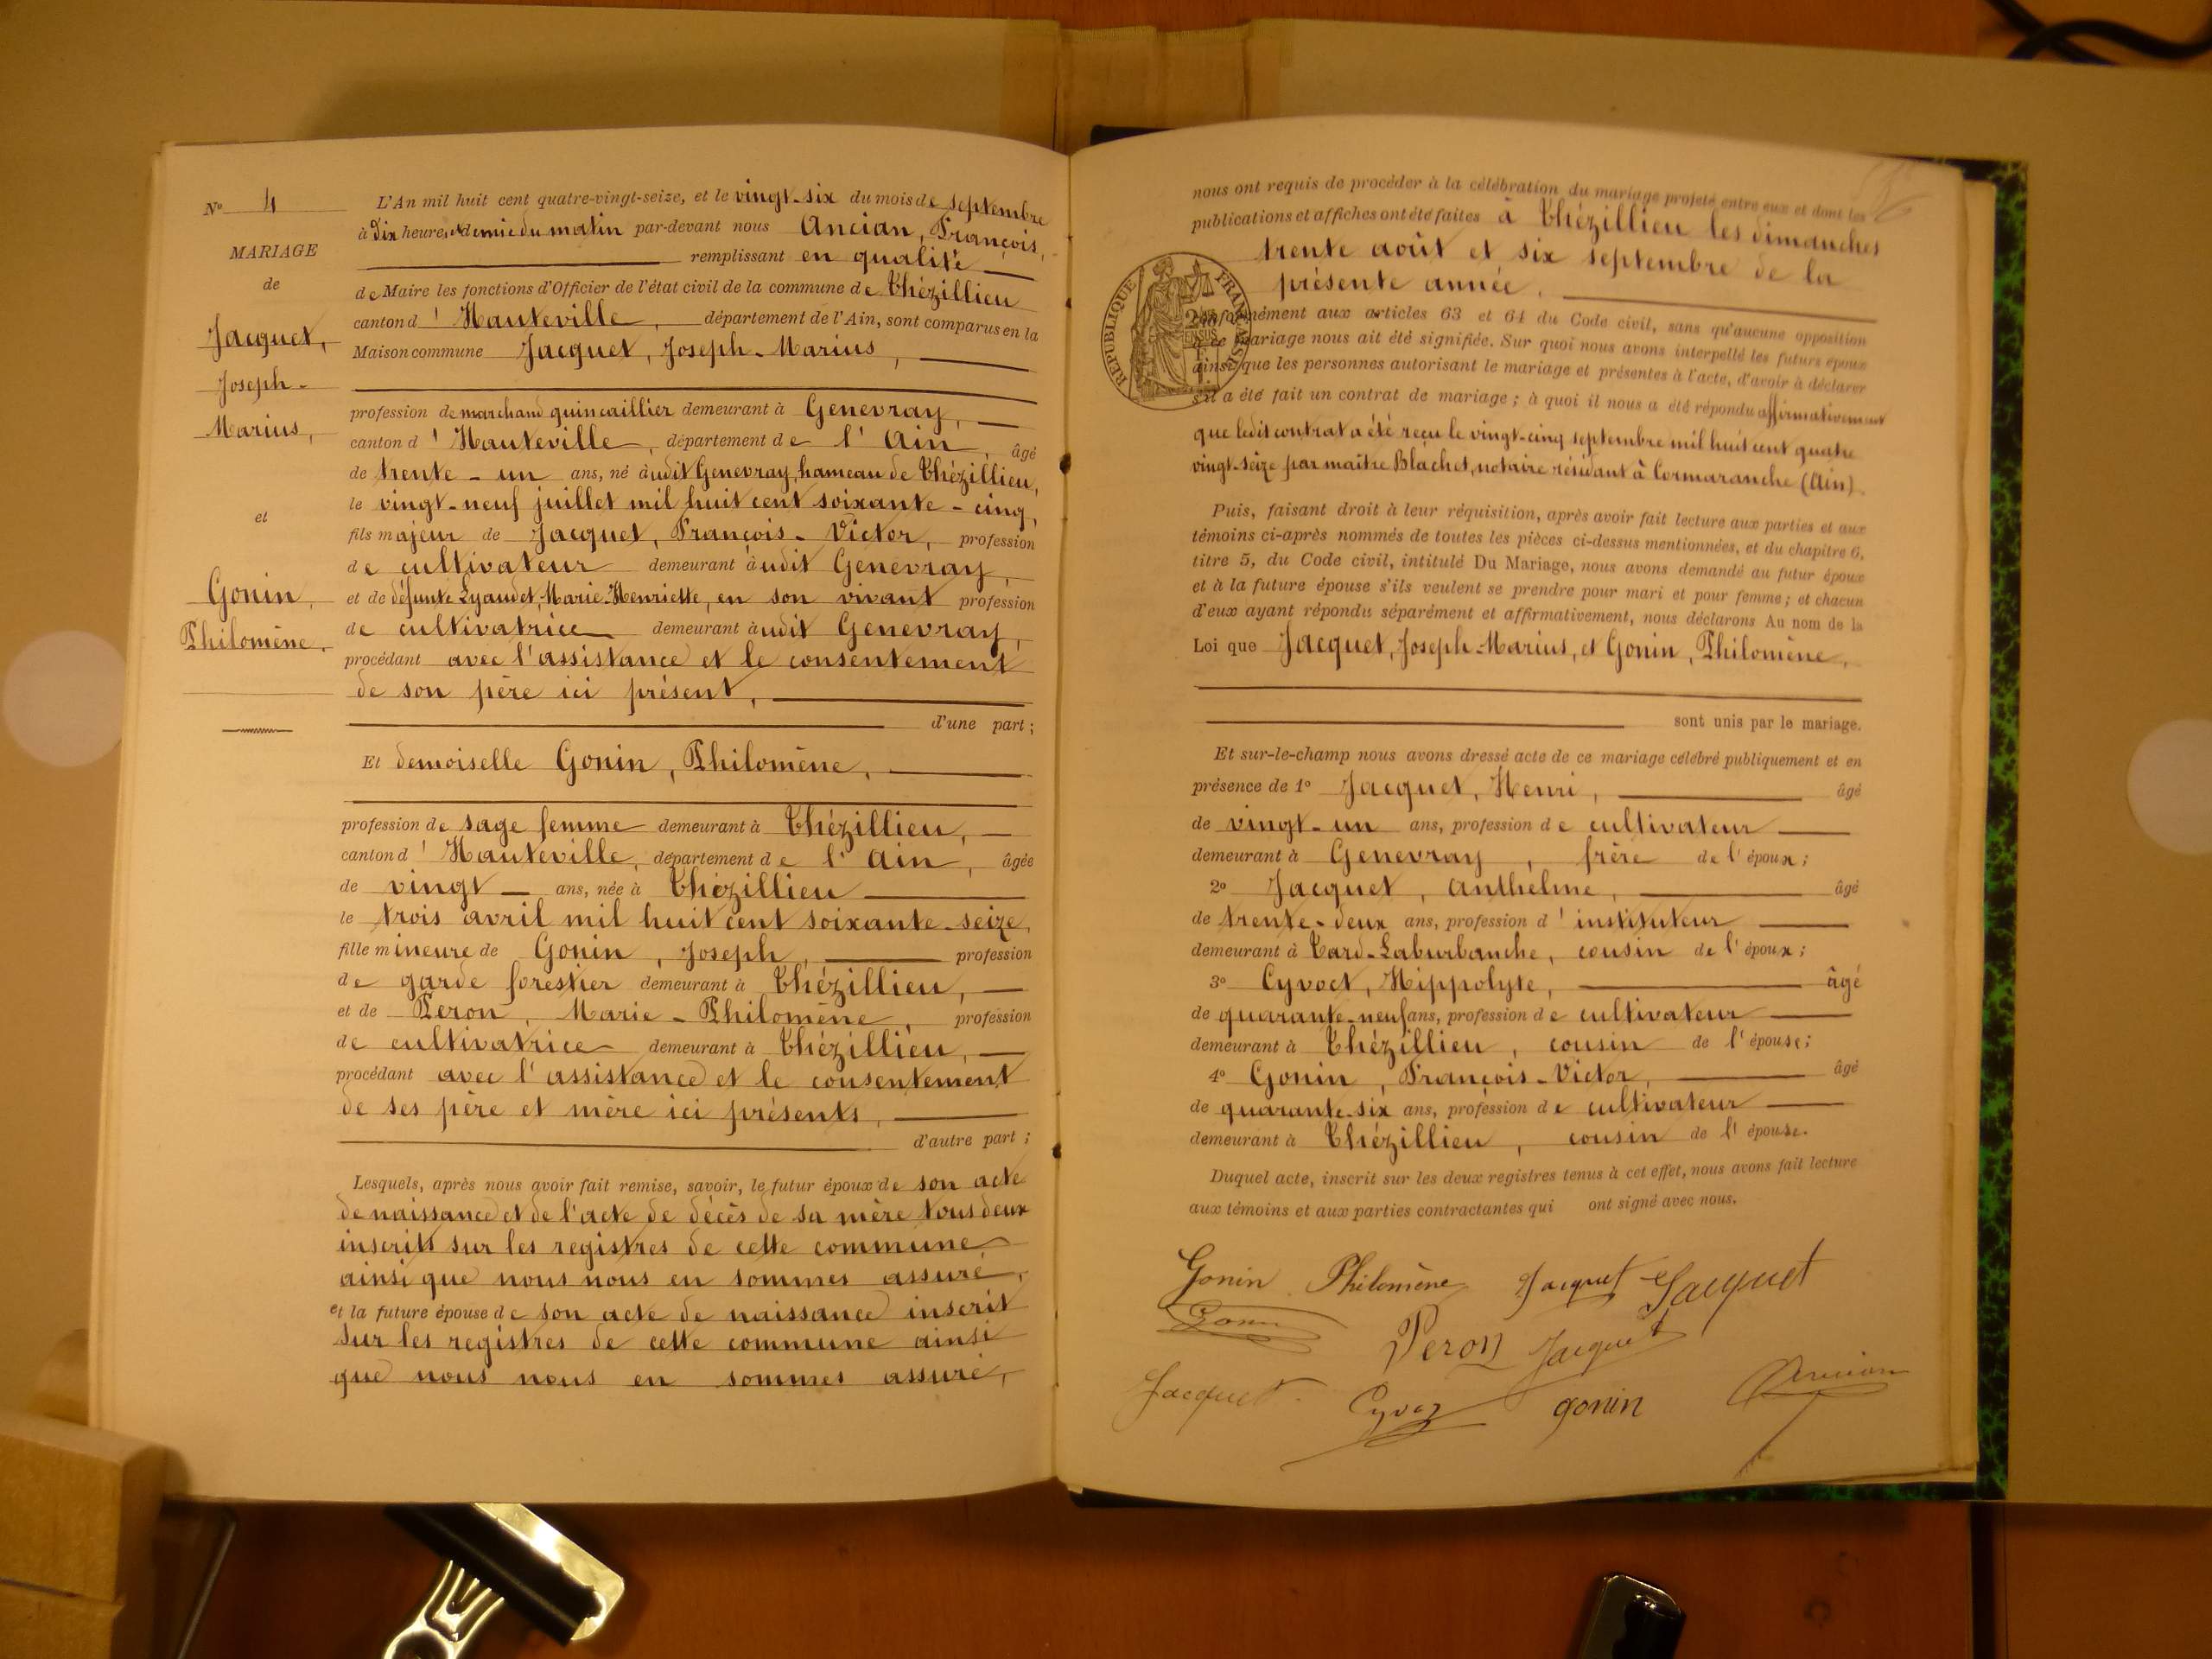 N° 4
MARIAGE
de
Jacquet,
Joseph-
Marius,
et
Gonin,
Philomène,
L'An mil huit cent quatre-vingt-seize, et le vingt-six du mois de septembre
à Dix heures et demie du matin par-devant nous Ancian, François,
remplissant en qualité
de Maire les fonctions d'Officier de l'état civil de la commune de Thézillieu
canton d' Hauteville, département de l'Ain, sont comparus en la
Maison commune Jacquet, Joseph-Marius,
profession de marchand quincaillier demeurant à Genevray,
canton d' Hauteville, département de l'Ain, âgé
de trente-un ans, né audit Genevray, hameau de Thézillieu,
le vingt-neuf juillet mil huit cent soixante-cinq,
fils majeur de Jacquet, François-Victor, profession
de cultivateur demeurant audit Genevray,
et de défunte Lyaudet, Marie-Henriette, en son vivant profession
de cultivatrice demeurant audit Genevray,
procédant avec l'assistance et le consentement
de son père ici présent,
d'une part ;
Et demoiselle Gonin, Philomène,
profession de sage femme demeurant à Thézillieu,
canton d' Hauteville, département de l'Ain, âgée
de vingt ans, née à Thézillieu
le trois avril mil huit cent soixante-seize,
fille mineure de Gonin, Joseph, profession
de garde forestier demeurant à Thézillieu,
et de Peron, Marie-Philomène, profession
de cultivatrice demeurant à Thézillieu,
procédant avec l'assistance et le consentement
de ses père et mère ici présents,
d'autre part ;
Lesquels, après nous avoir fait remise, savoir, le futur époux de son acte
de naissance et de l'acte de décès de sa mère tous deux
inscrits sur les registres de cette commune
ainsi que nous nous en sommes assuré,
et la future épouse de son acte de naissance inscrit
sur les registres de cette commune ainsi
que nous nous en sommes assuré,
nous ont requis de procéder à la célébration du mariage projeté entre eux et dont les
publications et affiches ont été faites à Thézillieu les dimanches
trente août et six septembre de la
présente année,
RÉPUBLIQUE FRANÇAISE
conformément aux articles 63 et 64 du Code civil, sans qu'aucune opposition
à ce mariage nous ait été signifiée. Sur quoi nous avons interpellé les futurs époux
ainsi que les personnes autorisant le mariage et présentes à l'acte, d'avoir à déclarer
s'il a été fait un contrat de mariage ; à quoi il nous a été répondu affirmativement
que ledit contrat a été reçu le vingt-cinq septembre mil huit cent quatre
vingt-seize par maître Blachet, notaire résidant à Cormaranche (Ain).
Puis, faisant droit à leur réquisition, après avoir fait lecture aux parties et aux
témoins ci-après nommés de toutes les pièces ci-dessus mentionnées, et du chapitre 6,
titre 5, du Code civil, intitulé Du Mariage, nous avons demandé au futur époux
et à la future épouse s'ils veulent se prendre pour mari et pour femme ; et chacun
d'eux ayant répondu séparément et affirmativement, nous déclarons Au nom de la
Loi que Jacquet, Joseph-Marius, et Gonin, Philomène,
sont unis par le mariage.
Et sur-le-champ nous avons dressé acte de ce mariage célébré publiquement et en
présence de 1° Jacquet, Henri, âgé
de vingt-un ans, profession de cultivateur
demeurant à Genevray, frère de l'époux ;
2° Jacquet, Anthelme, âgé
de trente-deux ans, profession d'instituteur
demeurant à Tard-Laburbanche, cousin de l'époux ;
3° Cyvoct, Hippolyte, âgé
de quarante-neuf ans, profession de cultivateur
demeurant à Thézillieu, cousin de l'épouse ;
4° Gonin, François-Victor, âgé
de quarante-six ans, profession de cultivateur
demeurant à Thézillieu, cousin de l'épouse.
Duquel acte, inscrit sur les deux registres tenus à cet effet, nous avons fait lecture
aux témoins et aux parties contractantes qui ont signé avec nous.
Gonin Philomène Jacquet Jacquet
Gonin
Peron Jacquet
Jacquet Cyvoz gonin Ancian